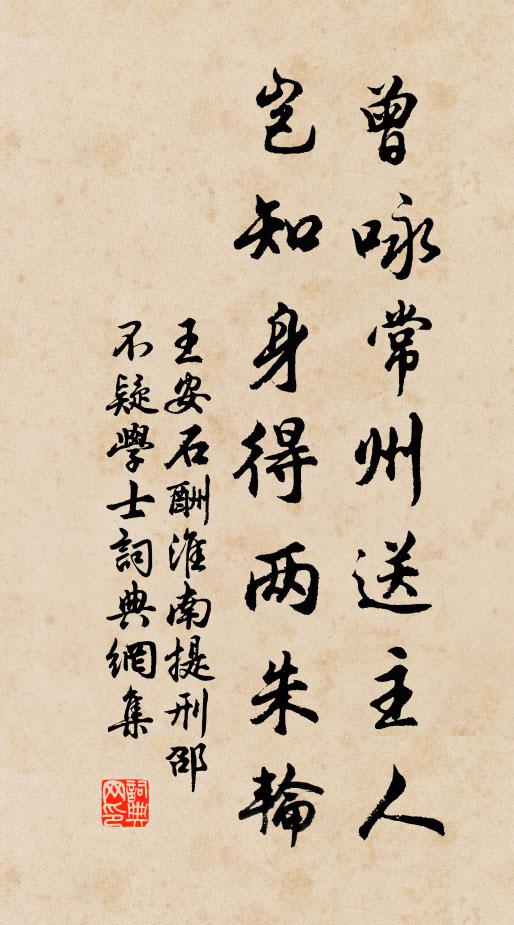 曾咏常州送主人
岂知身得两朱輪
王安石酬淮南提刑邵
不疑學士詞典網集
詞典网印